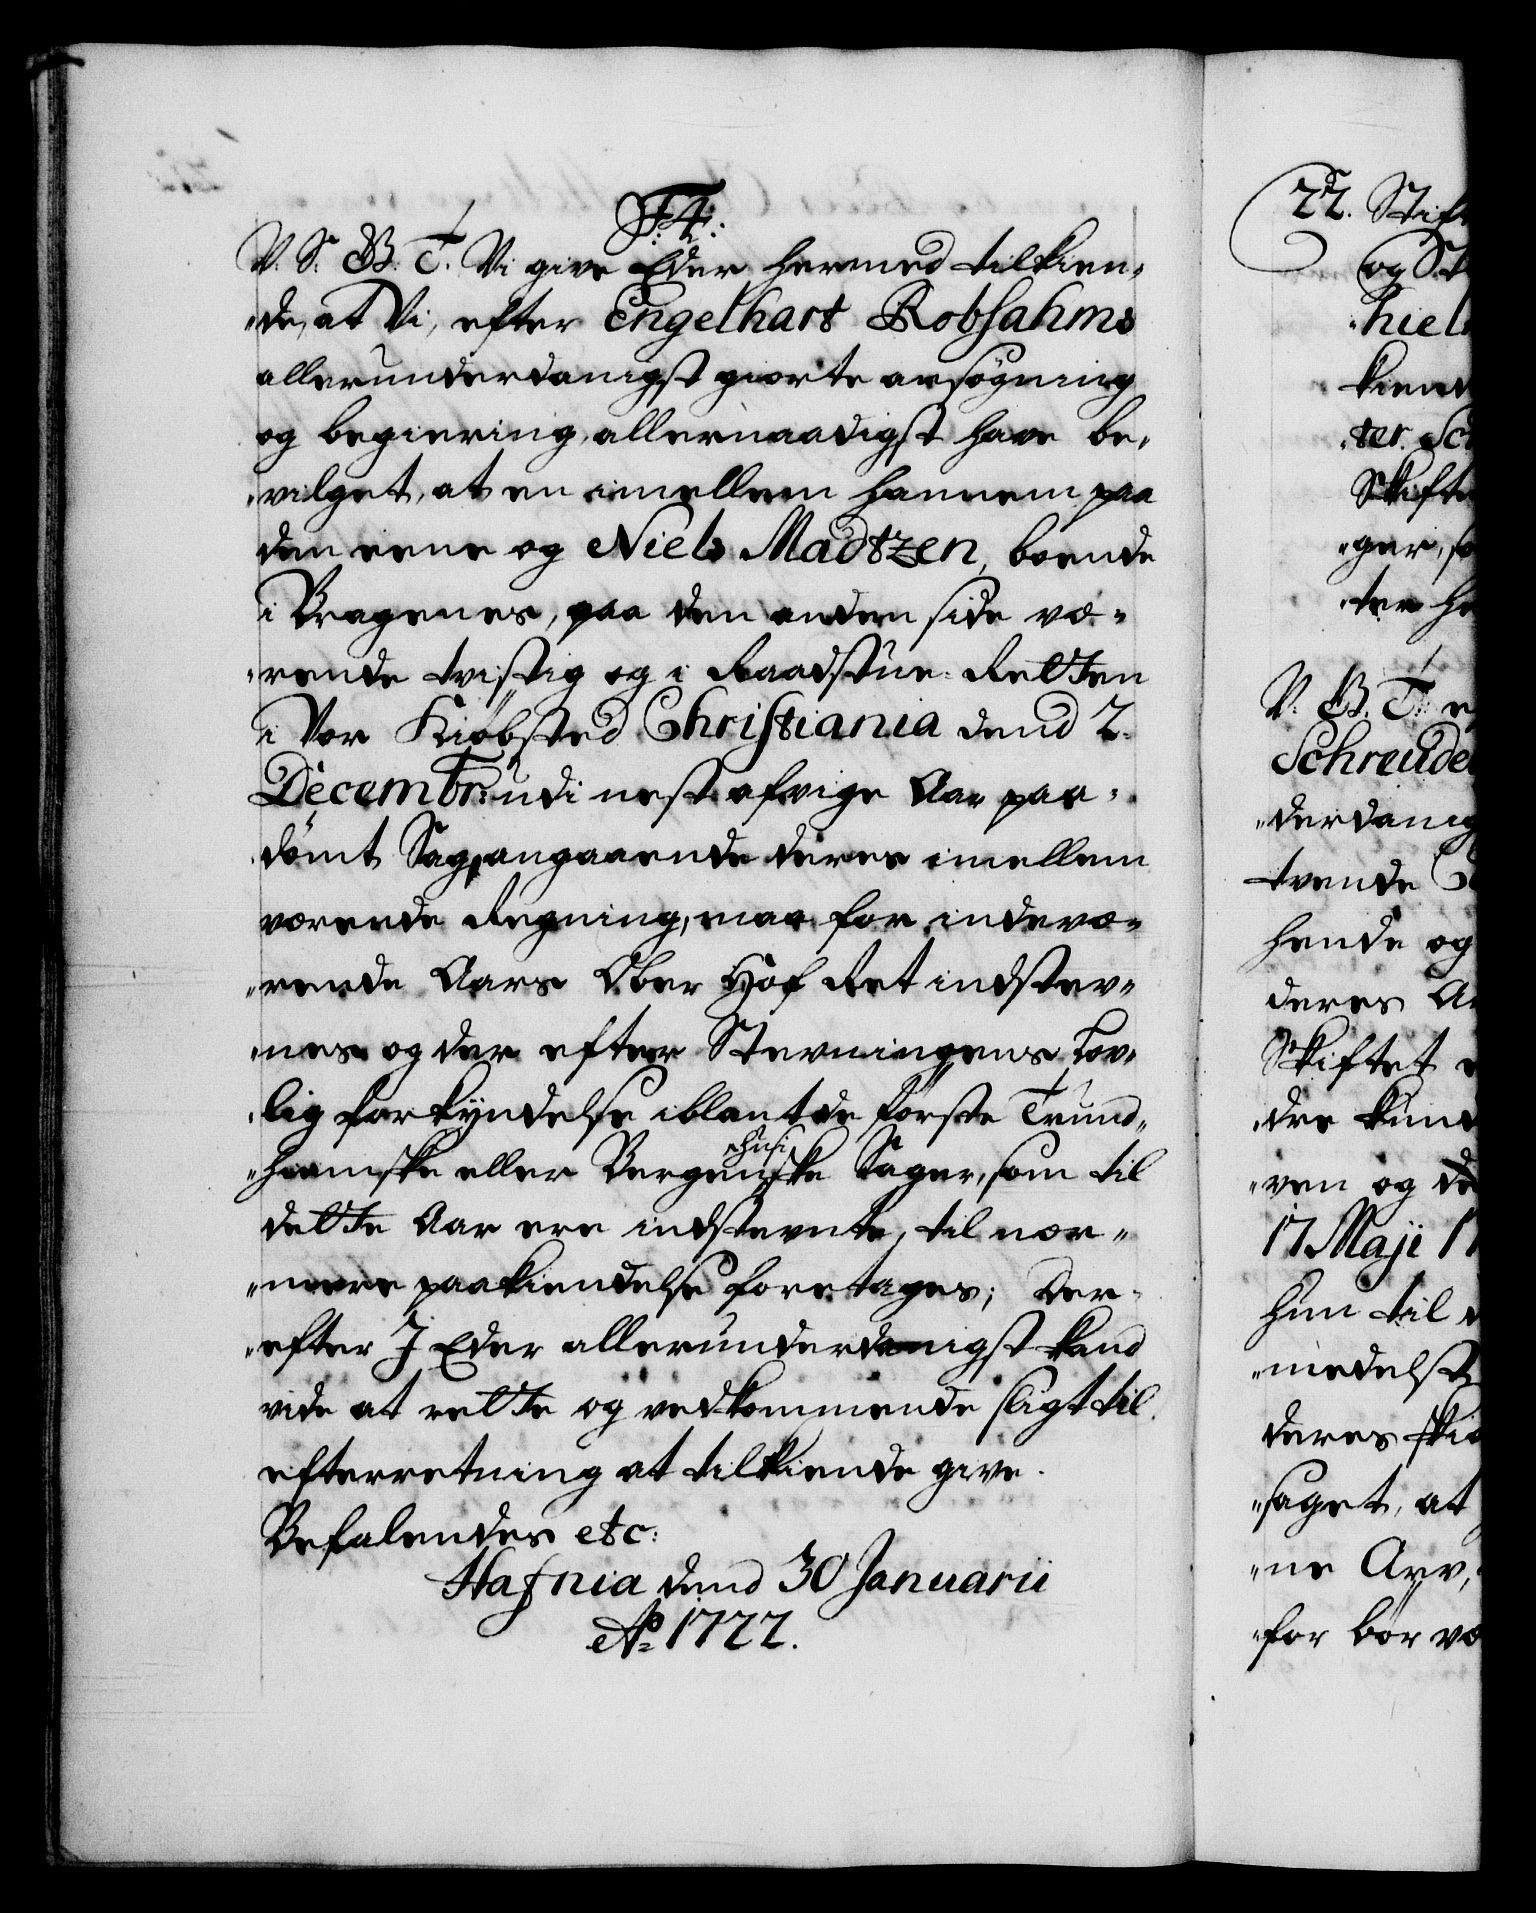 F: 4:
V: S: B: T: Vi give Eder hermed tilkien„
„de, at Vi, efter Engelhart Robsahms
allerunderdanigst giorte ansøgning
og begiering, allernaadigst have be„
„vilget, at en imellem hannem paa
den eene og Niels Madtzen, boende
i Bragenes, paa den anden side væ„
„rende tvistig og i Raadstue-Retten
i Vor Kiøbsted Christiania dend 2.
Decembr: udi nest afvige Aar paa„
„dømt Sag, angaaende deres imellem
værende Regning, maa for indevæ„
„rende Aars Ober Hof Ret indstev„
„nes og der efter Stevningens Lov„
„lig forkyndelse iblant de første Trund„
„hiemske eller Bergenhusiske Sager, som til
dette Aar ere indstevnte, til nær„
„mere paakiendelse foretages; Der„
„efter I Eder allerunderdanigst kand
vide at rette og vedkommende sligt til
efterretning at tilkiende give.
Befalendes etc:
Hafnia dend 30 Januarii
Ao 1722.
22. Stift
og St
hiel
kiend
„ter Sch
Skifte
„ger, so
„ter he
V: B: T: e
Schreude
„derdanig
tvende
hende og
deres Ar
Skiftet
„dre kund
„ven og de
17 Maji 17
hun til
„medelst
deres ski
„saget, at
„ne Arv,
„for bør væ